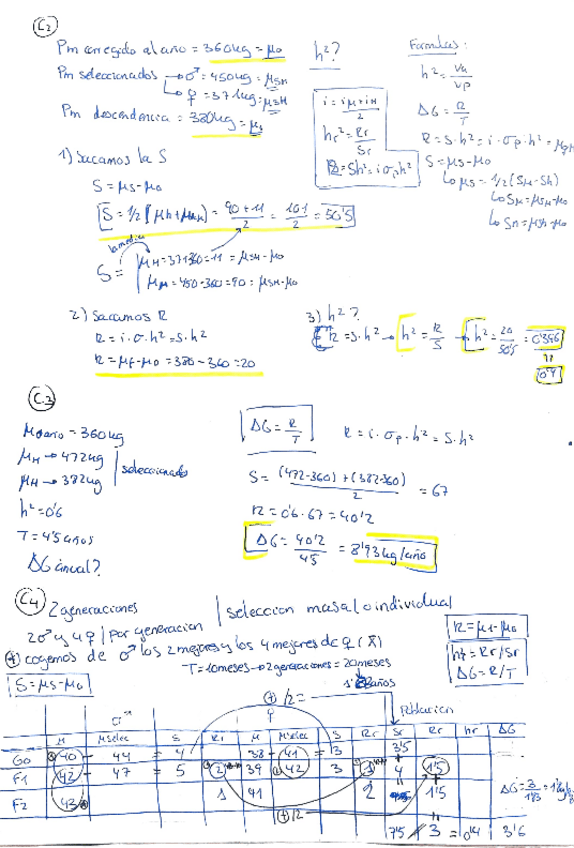 C2
Pm corregido al año = 360kg = μ0
h²?
Formulas:
Pm seleccionados → ♂ = 450kg = μSM
↳ ♀ = 371kg = μSH
Pm descendencia = 380kg = μ1
i = iM + iH / 2
hr² = Rr / Sr
R = Sh² = i σp h²
h² = Va / Vp
ΔG = R / T
R = S·h² = i·σp·h²
S = μS - μ0
↳ μS = 1/2 (SM - SH)
↳ SM = μSM - μ0
↳ SH = μSH - μ0
1) Sacamos la S
S = μS - μ0
S = 1/2 (μH + μM) = 90 + 11 / 2 = 101 / 2 = 50'5
la media
S = μH = 371-360 = 11 = μSH - μ0
μM = 450 - 360 = 90 = μSM - μ0
2) Sacamos R
R = i·σ·h² = S·h²
R = μ1 - μ0 = 380 - 360 = 20
3) h²?
R = S·h² → h² = R / S → h² = 20 / 50'5 = 0'396
0'4
C.3
μ0 año = 360kg
μM → 472kg
μH → 382kg
seleccionado
h² = 0'6
T = 4'5 años
ΔG anual?
ΔG = R / T
R = i·σp·h² = S·h²
S = (472-360) + (382-360) / 2 = 67
R = 0'6·67 = 40'2
ΔG = 40'2 / 45 = 8'93 kg/año
C4
2 generaciones
2♂ y 4♀ | por generacion
seleccion masal o individual
cogemos de ♂ los 2 mejores y los 4 mejores de ♀ (X̄)
T = 10 meses → 2 generaciones = 20 meses
R = μ1 - μ0
h²r = Rr/Sr
ΔG = R/T
S = μS - μ0
/2 =
Poblacion
♂ ♀
μ μselec S Rr μ μselec S Rr Sr Rr hr ΔG
G0 40 - 44 = 4 38 - 41 = 3 3'5
F1 42 - 47 = 5 2 39 42 3 1 4 1'5
F2 43 1 41 2 1'5
/2
7'5 3 = 0'4 3'6